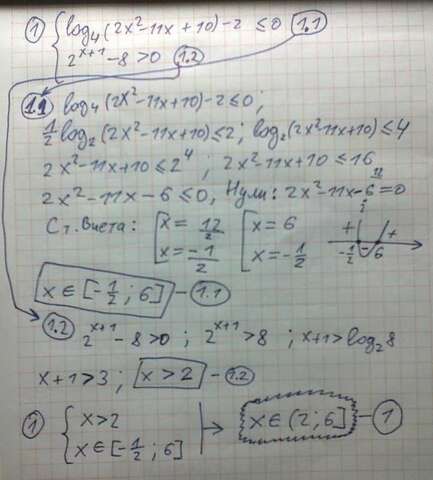 ① { log₄(2x²-11x+10)-2 ≤0 (1.1)
2^(x+1)-8>0 (1.2)
(1.1) log₄(2x²-11x+10)-2≤0;
½log₂(2x²-11x+10)≤2; log₂(2x²-11x+10)≤4
2x²-11x+10≤2⁴; 2x²-11x+10≤16
2x²-11x-6≤0, Нули: 2x²-11x-6=0
Ст. Виета: [x=12/2 x=-1/2 [x=6 x=-1/2 + - + -1/2 6
x∈[-½;6] -(1.1)
(1.2) 2^(x+1)-8>0; 2^(x+1)>8; x+1>log₂8
x+1>3; x>2 -(1.2)
① { x>2
x∈[-½;6] → x∈(2;6] -①